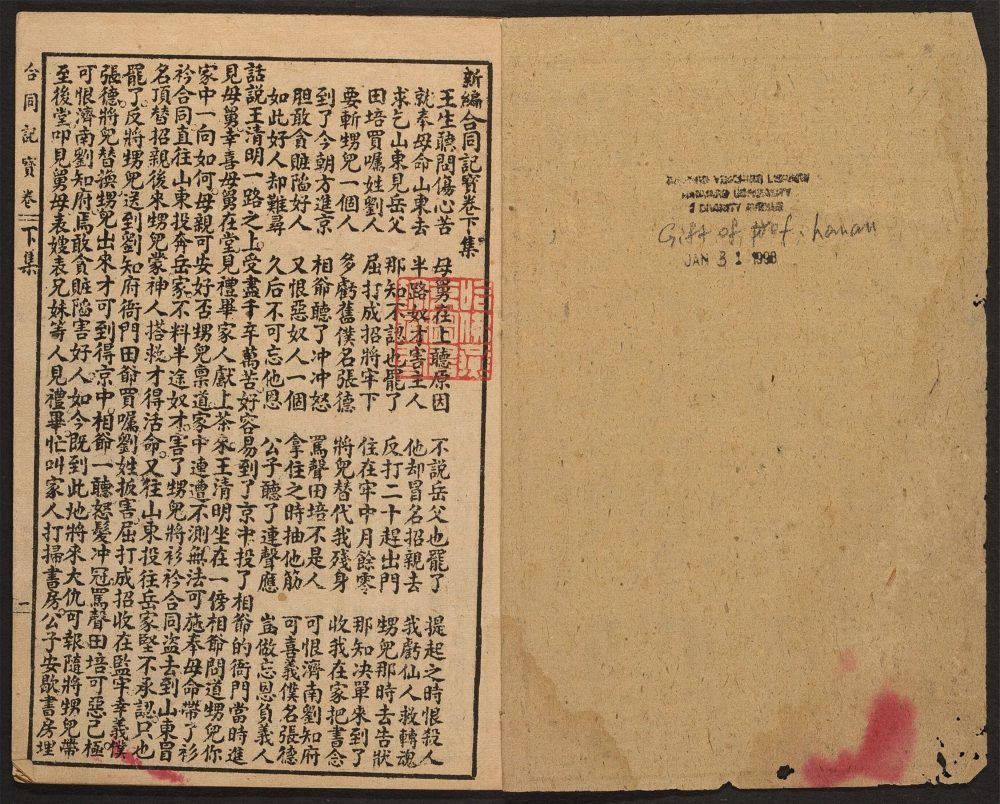 新編合同記寶卷下集
王生聽問傷心苦　母舅在上聽原因　不說岳父也罷了　提起之時恨殺人
就奉母命山東去　半路奴才害主人　他却冒名招親去　我虧仙人救轉魂
求乞山東見岳父　那知不認也罷了　反打二十趕出門　甥兒那時去告狀
田培買囑姓劉人　屈打成招將牢下　住在牢中月餘零　那知决單來到了
要斬甥兒一個人　多虧舊僕名張德　將兒替代我殘身　收我在家把書念
到了今朝方進京　相爺聽了冲冲怒　罵聲田培不是人　可恨濟南劉知府
胆敢貪賍陷好人　又恨惡奴人一個　拿住之時抽他筋　可喜義僕名張德
如此好人却難尋　久后不可忘他恩　公子聽了連聲應　豈做忘恩負義人
話說王清明一路之上受盡千辛萬苦好容易到了京中投了相爺的衙門當時進
見母舅幸喜母舅在堂見禮畢家人獻上茶來王清明坐在一傍相爺問道甥兒你
家中一向如何母親可安好否甥兒稟道家中連遭不測無法可施奉母命帶了衫
衿合同直往山東投奔岳家不料半途奴才害了甥兒將衫衿合同盜去到山東冒
名頂替招親後來甥兒蒙神人搭救才得活命又往山東投往岳家堅不承認只也
罷了反將甥兒送到劉知府衙門田爺買囑劉姓扳害屈打成招收在監牢幸義僕
張德將兒替換甥兒出來才可到得京中相爺一聽怒髮冲冠罵聲田培可惡已極
可恨濟南劉知府焉敢貪賍陷害好人如今既到此地將來大仇可報隨將甥兒帶
至後堂叩見舅母表嫂表兄妹等人見禮畢忙叫家人打掃書房公子安歇書房埋
合同記寶卷　下集　一
HARVARD-YENCHING LIBRARY
HARVARD UNIVERSITY
2 DIVINITY AVENUE
Gift of Prof. Hanan
JAN 31 1998